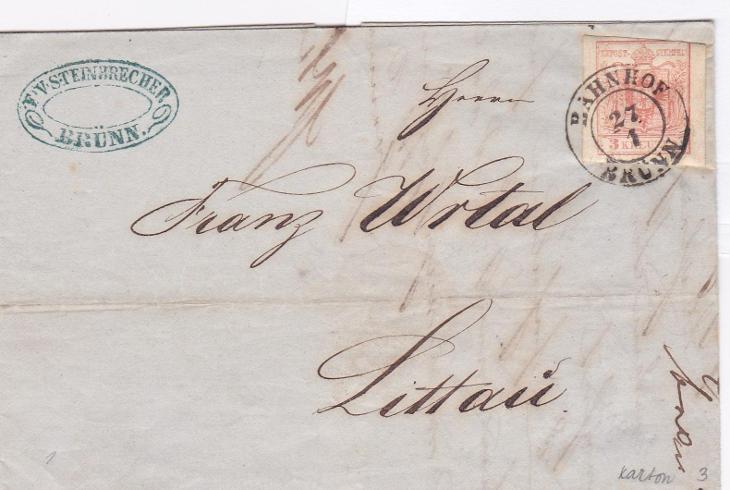 F. V. STEINBRECHER
BRÜNN.
KKPOST-STEMPEL
3 KREU
BAHNHOF
27.
1
BRÜNN
Herrn
Franz Wrtal
Littau.
karton 3
1